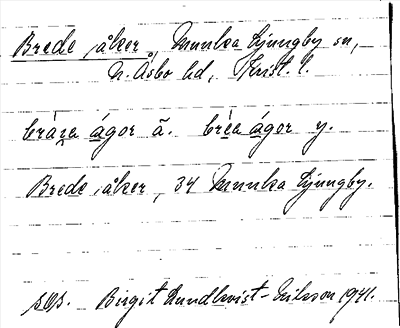 Brede åker, Munka Ljungby sn,
N. Åsbo hd, Krist. l.
bráza ágor ã. bréa ágor y.
Brede åker, 34 Munka Ljungby.
Birgit Lundkvist-Eriksson 1941.